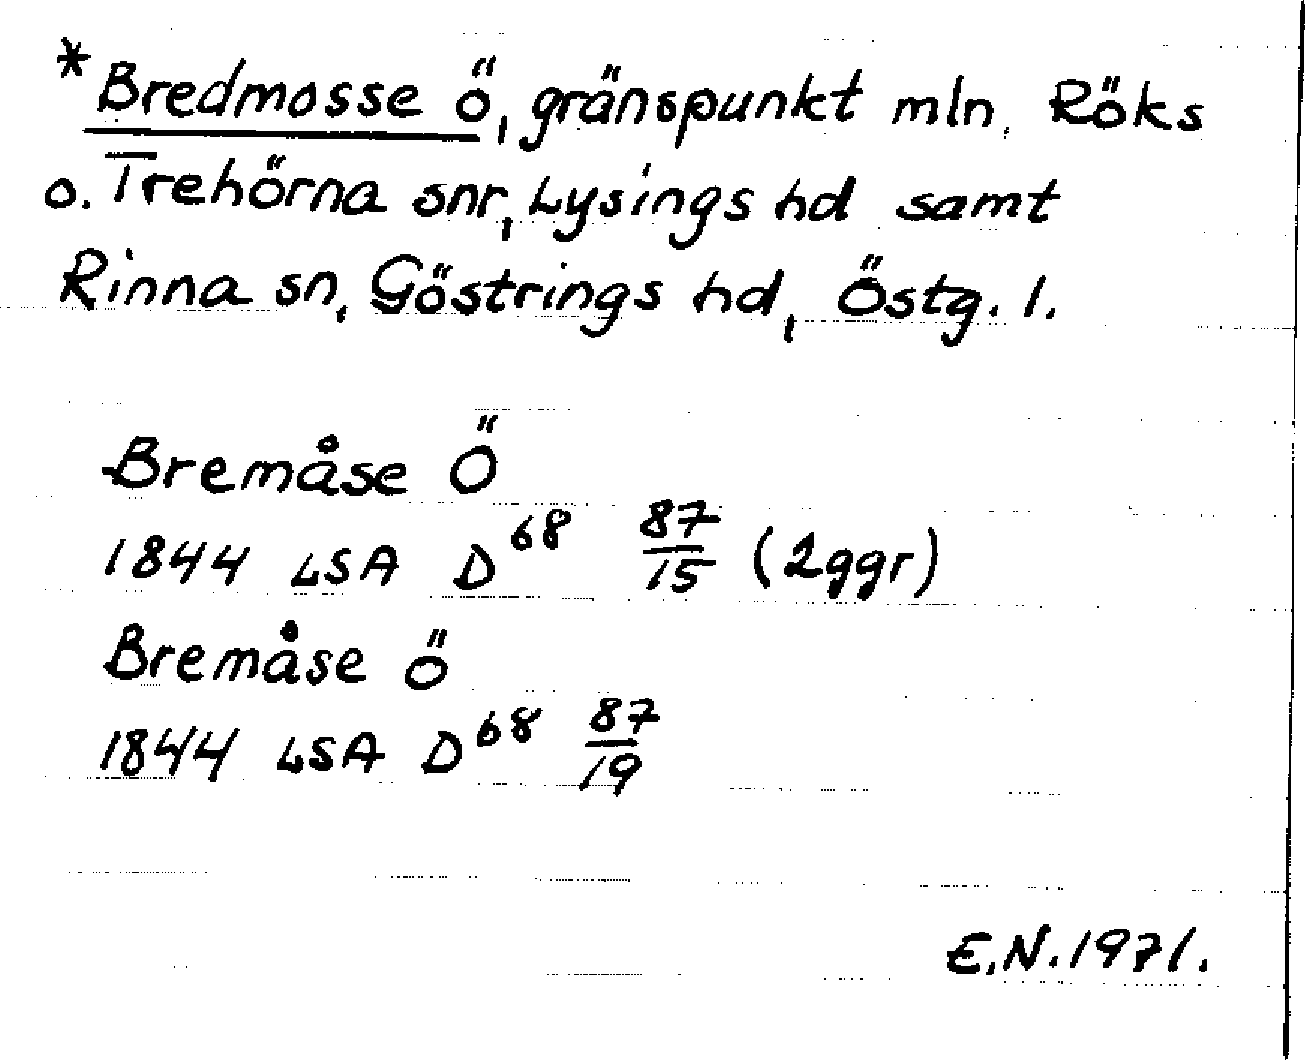 *Bredmosse ö, gränspunkt mln. Röks
o. Trehörna snr, Lysings hd samt
Rinna sn, Göstrings hd, Östg. l.
Bremåse Ö
1844 LSA D68 87/15 (2ggr)
Bremåse ö
1844 LSA D68 87/19
E.N.1971.